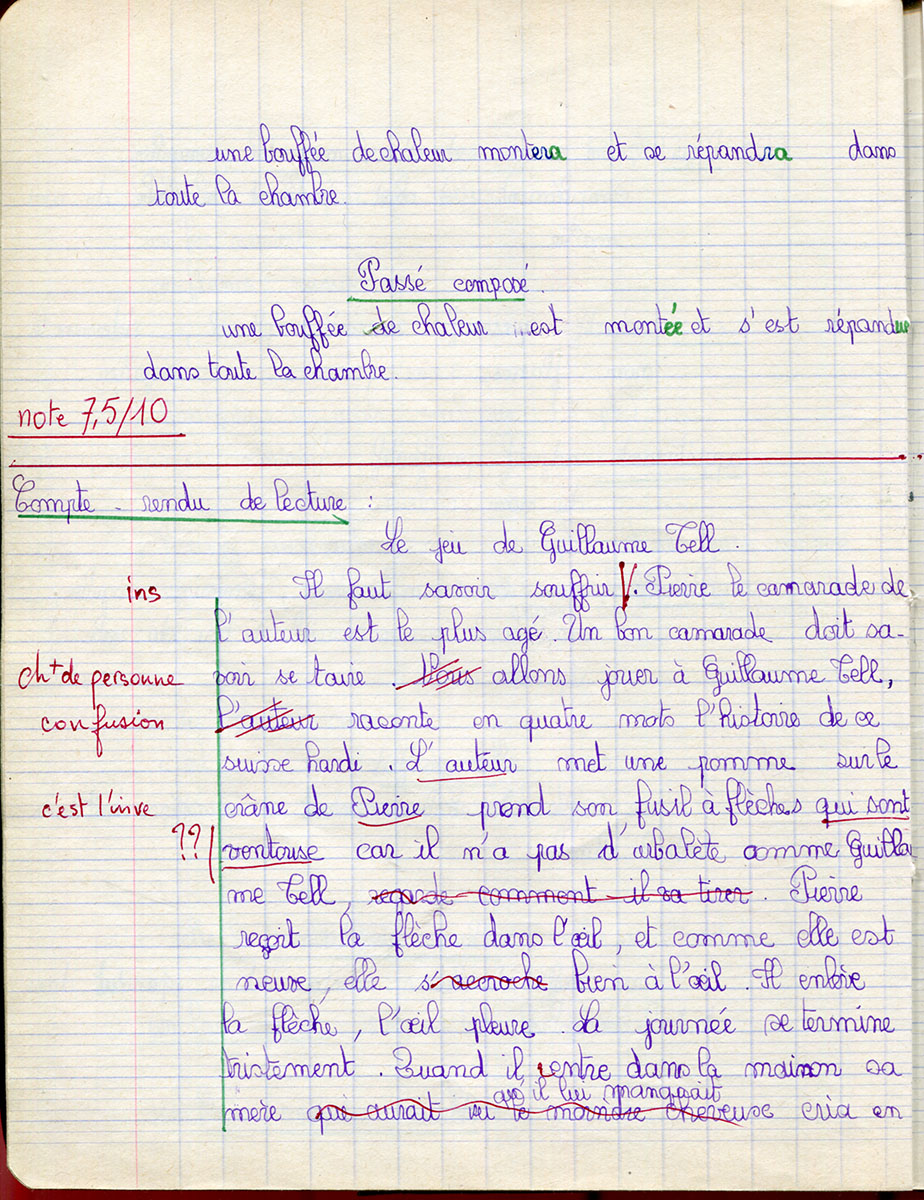 une bouffée de chaleur montera et se répandra dans
toute la chambre.
Passé composé.
une bouffée de chaleur est montée et s'est répandue
dans toute la chambre.
note 7,5/10
Compte-rendu de lecture :
Le jeu de Guillaume Tell.
ins Il faut savoir souffrir V. Pierre le camarade de
l'auteur est le plus agé. Un bon camarade doit sa-
ch+ de personne voir se taire. Nous allons jouer à Guillaume Tell,
confusion l'auteur raconte en quatre mots l'histoire de ce
suisse hardi. L'auteur met une pomme sur le
c'est l'inve crâne de Pierre prend son fusil à flèches qui sont
?? ventouse car il n'a pas d'arbalète comme Guillau
me Tell, regarde comment il va tirer. Pierre
reçoit la flèche dans l'œil, et comme elle est
neuve, elle s'accroche bien à l'œil. Il enlève
la flèche, l'œil pleure. La journée se termine
tristement. Quand il rentre dans la maison sa
il lui manquait
mère qui aurait vu le moindre cheveuse cria en